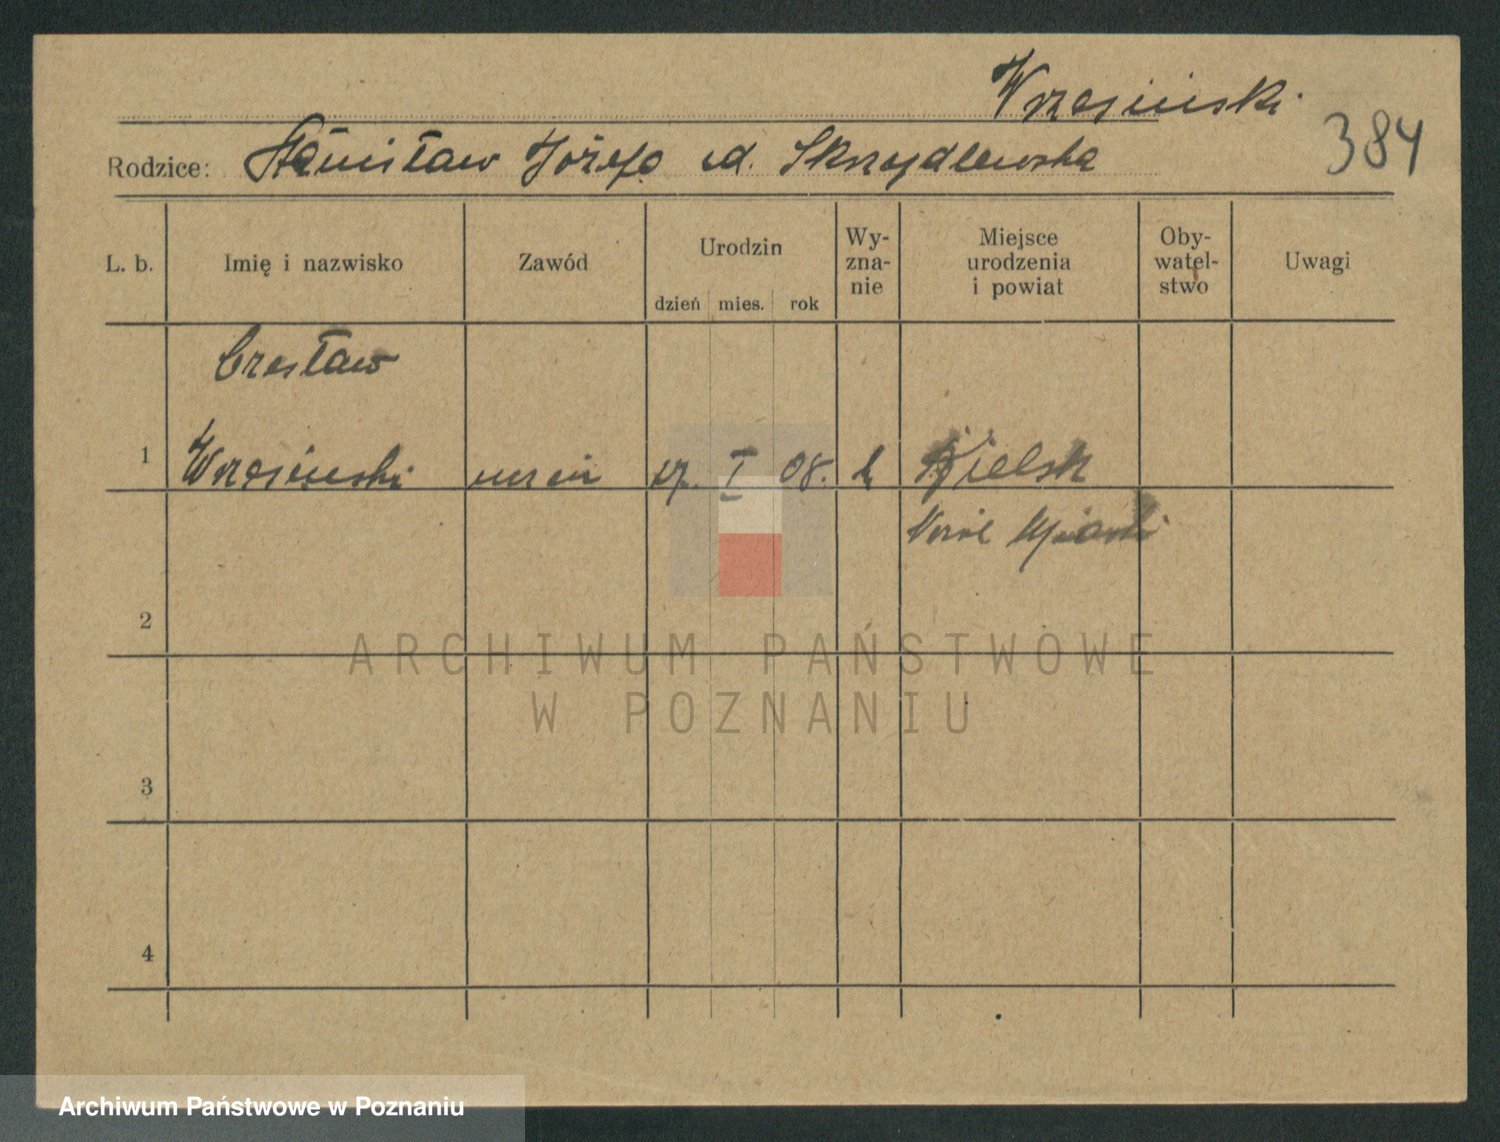 Wrzesiński.
384
Rodzice: Stanisław Józefa zd. Skrzydlewska
L. b. Imię i nazwisko Zawód Urodzin dzień mies. rok Wy-zna-nie Miejsce urodzenia i powiat Oby-watel-stwo Uwagi
Czesław
1 Wrzesiński uczeń 17. I 08. k Bielsk
2
3
4
ARCHIWUM PAŃSTWOWE
W POZNANIU
Archiwum Państwowe w Poznaniu